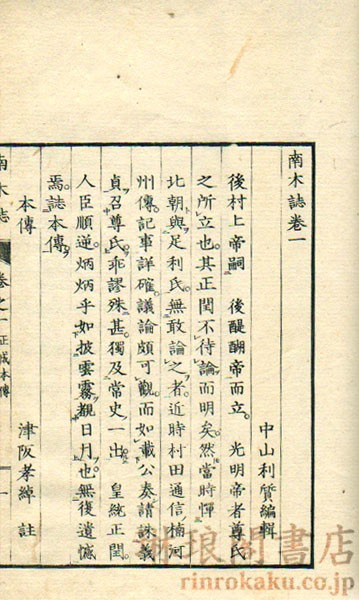 南木誌卷一
中山利質編輯
後村上帝嗣 後醍醐帝而立。 光明帝者尊氏
之所立也。其正閏不待論而明矣。然當時憚
北朝與足利氏。無敢論之者。近時村田通信楠河
州傳。記事詳確。議論頗可觀。而如載公奏請誅義
貞召尊氏。乖謬殊甚。獨及常史一出。 皇統正閏。
人臣順逆。炳炳乎如披雲霧覩日月也。無復遺憾
焉。誌本傳。
本傳 津阪孝綽 註
南木誌 卷之一 正成本傳 一
琳琅閣書店
rinrokaku.co.jp